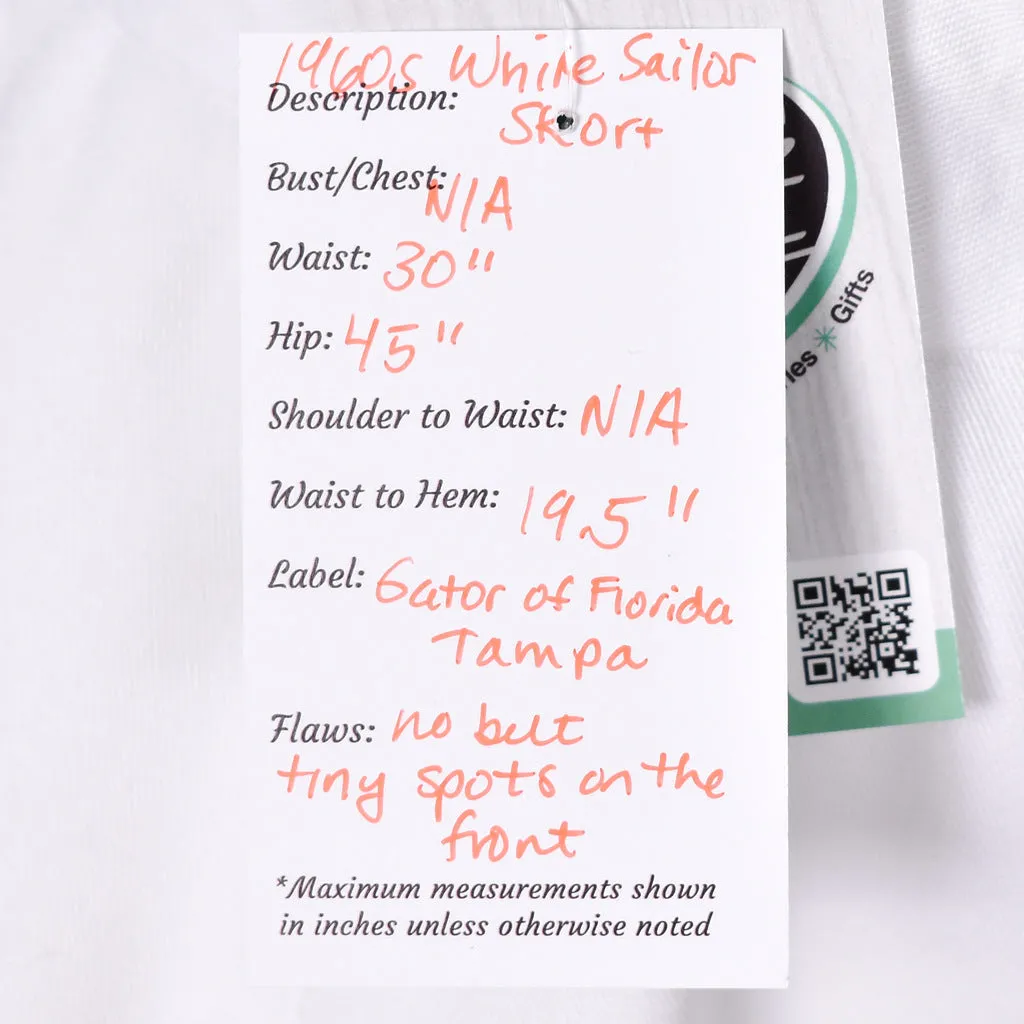 1960s White Sailor
Description:
Skort
Bust/Chest: N/A
Waist: 30"
Hip: 45"
Shoulder to Waist: N/A
Waist to Hem: 19.5"
Label: Gator of Florida
Tampa
Flaws: no belt
tiny spots on the
front
*Maximum measurements shown
in inches unless otherwise noted
* Gifts